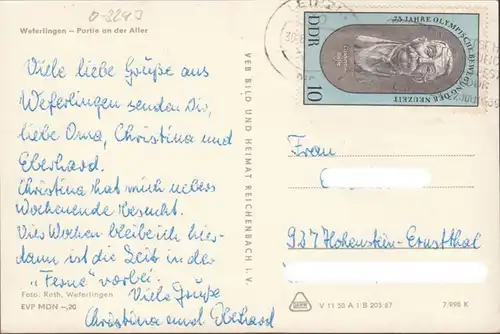 0-3293
Weferlingen – Partie an der Aller
Viele liebe Grüße aus
Weferlingen senden Dir,
liebe Oma, Christina und
Eberhard.
Christina hat mich uebers
Wochenende besucht.
Vier Wochen bleibe ich hier-
dann ist die Zeit in der
„Ferne" vorbei.
Viele Grüße
Christina und Eberhard
Foto: Roth, Weferlingen
EVP MDN –,20
VEB BILD UND HEIMAT REICHENBACH i. V.
LEIPZIG
DDR
75 JAHRE OLYMPISCHE BEWEGUNG DER NEUZEIT
10
Frau
927 Hohenstein-Ernstthal
V 11 50 A 1 B 205/67
7,998 K